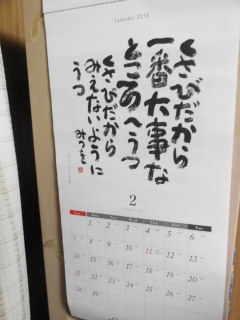 Calendar 2016
くさびだから
一番大事な
ところへうつ
くさびだから
みえないように
うつ
みつを
2
1 2 3 4 5 6
7 8 9 10 11 12 13
14 15 16 17 18 19 20
21 22 23 24 25 26 27
28 29